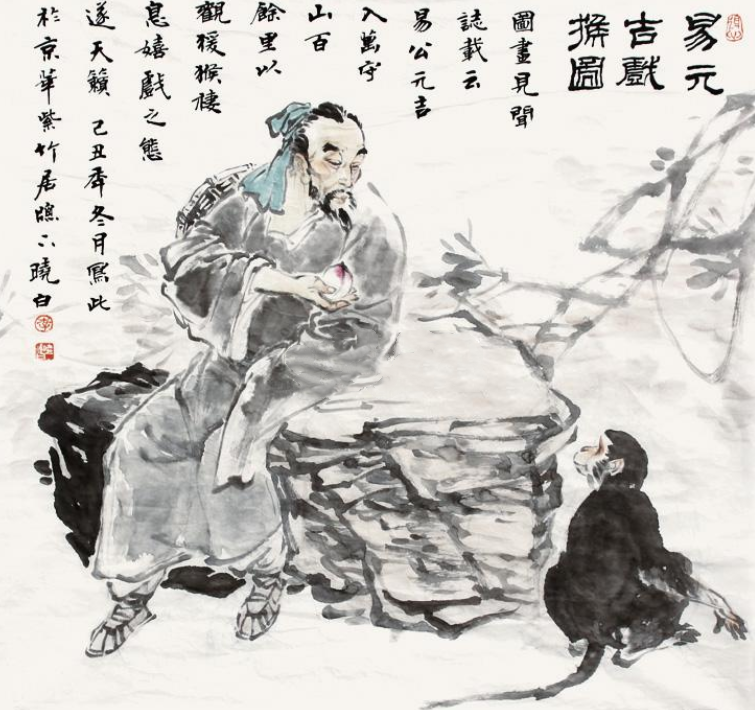 易元
吉戲
猴圖
圖畫見聞
誌載云
易公元吉
入萬守
山百
餘里以
觀猨猴棲
息嬉戲之態
遂天籟 己丑年冬月寫此
於京華紫竹居牕下曉白